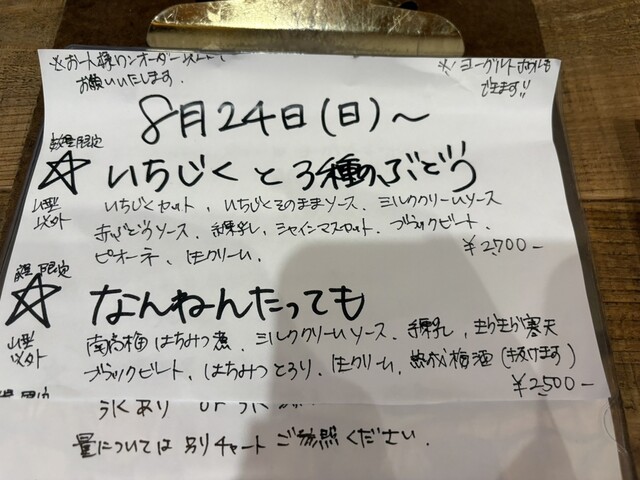 ※お一人様ワンオーダー以上
お願いいたします.
※ヨーグルト
できます!!
8月24日(日)~
数量限定
☆いちじくと3種のぶどう
山型
以外
いちじくカット、いちじくそのままソース、ミルククリームソース
赤ぶどうソース、練乳、シャインマスカット、ブラックビート
ピオーネ、生クリーム.
¥2,700-
数量限定
☆なんねんたっても
山型
以外
南高梅はちみつ煮、ミルククリームソース、練乳、きらきら寒天
ブラックビート、はちみつとろり、生クリーム、梅酒(抜けます)
¥2,500-
量については別チャートご参照ください.